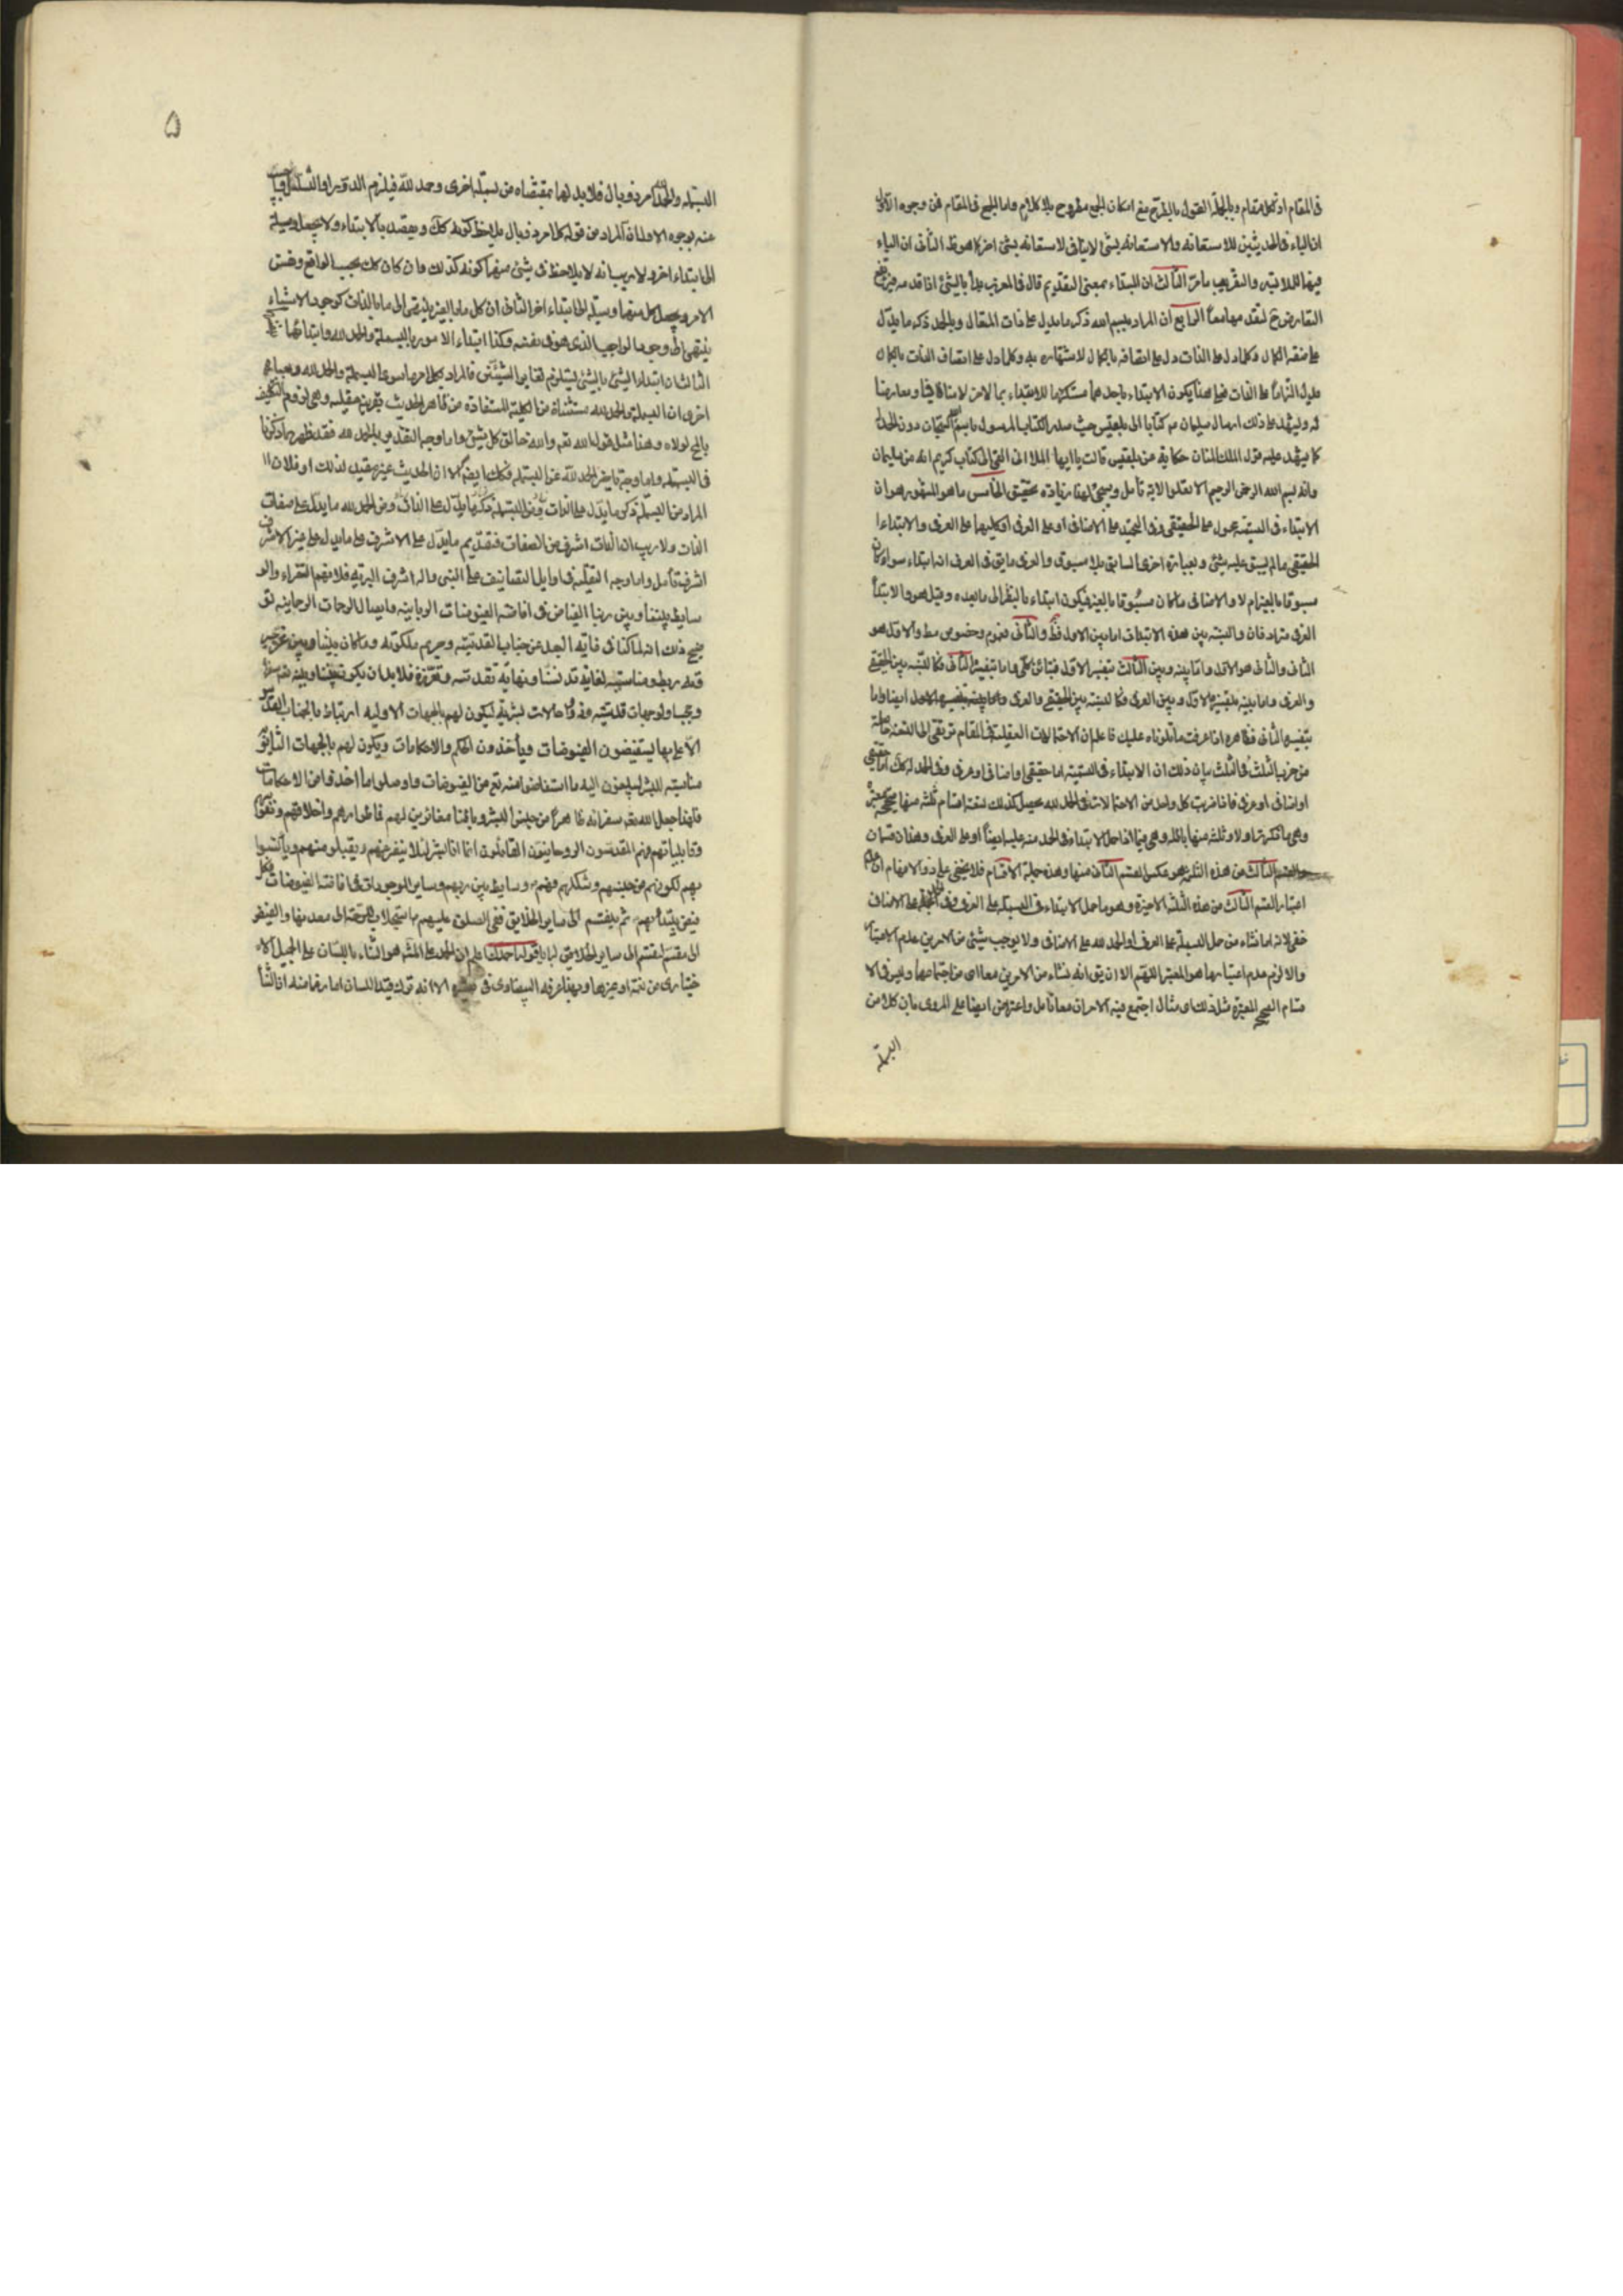 فى المقام اذ لكل مقام وبالجملة القول بالترجيح مع امكان الجمع مطروح بلا كلام واما الجمع فى المقام فمن وجوه الاول
ان الباء فى الحديثين للاستعانة والاستعانة بشئ لا ينافى الاستعانة بشئ اخر كما هو ظ الثانى ان الباء
فيها للملابسة والتقريب ما مر الثالث ان البداء بمعنى التقديم قال فى المغرب بدأ بالشئ اذا قدمه
التعارض ح لتقدمهما معا الرابع ان المراد ببسم الله ذكر ما يدل على ذات المتعال وبالحمد ذكر ما يدل
على صفة الكمال وكلما دل على الذات دل على اتصافه بالكمال لاشتهاره به وكلما دل على اتصاف الذات بالكمال
يدل التزاما على الذات فعلى هذا يكون الابتداء باحدهما مستلزما للابتداء بالاخر لا منافاة
له وليشهد على ذلك ارسال سليمان م كتابا الى بلقيس حيث صدر الكتاب المرسول باسم الله دون الحمد لله
كما يشهد عليه قول الملك المنان حكاية من بلقيس قالت يا ايها الملا انى القى الى كتاب كريم انه من سليمان
وانه بسم الله الرحمن الرحيم الا تعلوا الاية تأمل وسيجئ لهذا زيادة تحقيق الخامس ما هو المشهور وهو ان
الابتداء فى التسمية محمول على الحقيقى وفى التحميد على الاضافى او على العرفى او كليهما على العرفى والابتداء
الحقيقى ما لم يسبق عليه شئ وبعبارة اخرى السابق بلا مسبوق والعرفى ما يق فى العرف انه ابتداء سواء كان
مسبوقا بالغير ام لا والاضافى ما كان مسبوقا بالغير فيكون ابتداء بالنظر الى ما بعده وقيل هو والابتداء
العرفى مترادفان والنسبة بين هذه الابتدات اما بين الاول والثانى فعموم وخصوص مط والاول هو
الثانى والثانى هو الاول واما بينه وبين الثالث بتفسير الاول فتباين كلى واما بتفسيره الثانى فكالنسبة بين الحقيقى
والعرفى واما بينه بتفسيره الاول وبين العرفى فكالنسبة بين الحقيقى والعرفى
بتفسيره الثانى فظاهره اذا عرفت ما تلوناه عليك فاعلم ان الاحتمالات العقلية فى المقام ترتقى الى التسعة حاصلة
من ضرب الثلث فى الثلث بيان ذلك ان الابتداء فى التسمية اما حقيقى او اضافى او عرفى وفى الحمد لله كك اما حقيقى
او اضافى او عرفى فاذا ضربت كل واحد من الاحتمالات فى الحمد لله يحصل كذلك تسعة اقسام ثلثة منها صحيحة معتبرة
وهى ما ذكرناه اولا وثلثة منها باطلة وهى فيما اذا حمل الابتداء فى الحمد عليه ايضا او على العرفى وهذان قسمان
الثالث من هذه الثلثة هو عكس القسم الثانى منها وهذه جملة الاقسام فلا يخفى على ذوى الافهام ان عدم
اعتبار القسم الثالث من هذه الثلثة الاخيرة وهو ما حمل الابتداء فى البسملة على العرفى وفى الحمدلة على الاضافى
خفى لانه اما نشاء من حمل البسملة على العرفى او الحمد لله على الاضافى ولا يوجب شئ من الامرين عدم الاعتبار
والا لزم عدم اعتبارهما هو المعتبر اللهم الا ان يق انه نشاء من الامرين معا اى من اجتماعهما وليس فى الا
قسام الصحيحة المعتبرة مثل ذلك اى مثال اجتمع فيه الامران معا تأمل واعترض ايضا على المروى بان كلا من
البسملة
۵
البسملة والحمد امر ذو بال فلا بد لها بمقتضاه من بسملة اخرى وحمد لله فيلزم الدور او التسلسل
عنه بوجوه الاول ان المراد من قوله كل امر ذو بال ما يلاحظ كونه كك ويقصد بالابتداء ولا يجعل وسيلة
الى ابتداء اخر ولا ريب انه لا يلاحظ فى شئ منهما كونه كذلك وان كان كك بحسب الواقع ونفس
الامر ويجعل كل منهما وسيلة الى ابتداء اخر الثانى ان كل ما بالغير لينتهى الى ما بالذات كوجود الاشياء
ينتهى الى وجود الواجب الذى هو فى نفسه وكذا ابتداء الامور بالبسملة والحمد لله وابتدائهما
الثالث ان ابتداء الشئ بالشئ يستلزم تغاير الشيئين فالمراد بكل امر ما سوى البسملة والحمد لله وبعبارة
اخرى ان البسملة والحمد لله مستثناة من الكلية المستفادة من ظاهر الحديث بقرينة عقلية وهى لزوم التكليف
بالمح لولاه وهذا مثل قوله الله تعالى والله خالق كل شئ واما وجه التقديم بالحمد لله فقد ظهر ما ذكرنا
فى البسملة واما وجه تأخير الحمد لله عن البسملة فكك ايضا الا ان الحديث غير مقيد لذلك او فلان
المراد من البسملة ذكر ما يدل على الذات ومن الحمد لله ما يدل على صفات
الذات ولا ريب ان الذات اشرف من الصفات فتقديم ما يدل على الاشرف على ما يدل على غير الاشرف
اشرفية تأمل واما وجه التصلية فى اوايل التصانيف على النبى واله اشرف البرية فلانهم السفراء والو
سايط بيننا وبين ربنا الفياض فى افاضة الفيوضات الربانية وايصال الرحمات الرحمانية تو
ضيح ذلك انه لما كنا فى غاية البعد عن جناب القدسية وحريم ملكوته وما كان بيننا وبين عز
قدسه ربط ومناسبة لغاية تدنسنا ونهاية تقدسه وتعززه فلا بد ان يكون بيننا وبينه سفراء
وحجبا ذو جهات قدسية وذوى حالات بشرية ليكون لهم بالجهات الاولية ارتباط بالجناب القدسى
الاعلى بها يستفيضون الفيوضات ويأخذون الحكم والاحكامات ويكون لهم بالجهات الثانوية
مناسبة للبشر ليلحون اليه ما استفاضوا منه تع من الفيوضات واوصلوا ما اخذوا من الاحكامات
فلهذا جعل الله تعالى سفرائه ظاهرا من جنس البشر وباطنا مغائرين لهم فى اطوارهم واخلاقهم ونفوسهم
وقابلياتهم فهم المقدسون الروحانيون القائلون انما انا بشر لئلا ينفر عنهم ويقبلوا منهم ويأنسوا
بهم لكونهم من جنسهم وشكلهم فهم وسايط بين ربهم وساير الموجودات فى افاضة الفيوضات فكل
فيض يبتدأ بهم ثم ينقسم الى ساير الخلايق ففى الصلوة عليهم استجلاب الرحمة الى معدنها والفيض
الى مقسمه ليقسم الى ساير الخلايق قوله احمدك اعلم ان الحمد على المشهور هو الثناء باللسان على الجميل الا
ختيارى من نعمة او غيرها وبهذا عرفه البيضاوى فى الا انه ترك قيد اللسان اما رغما منه ان الثنا